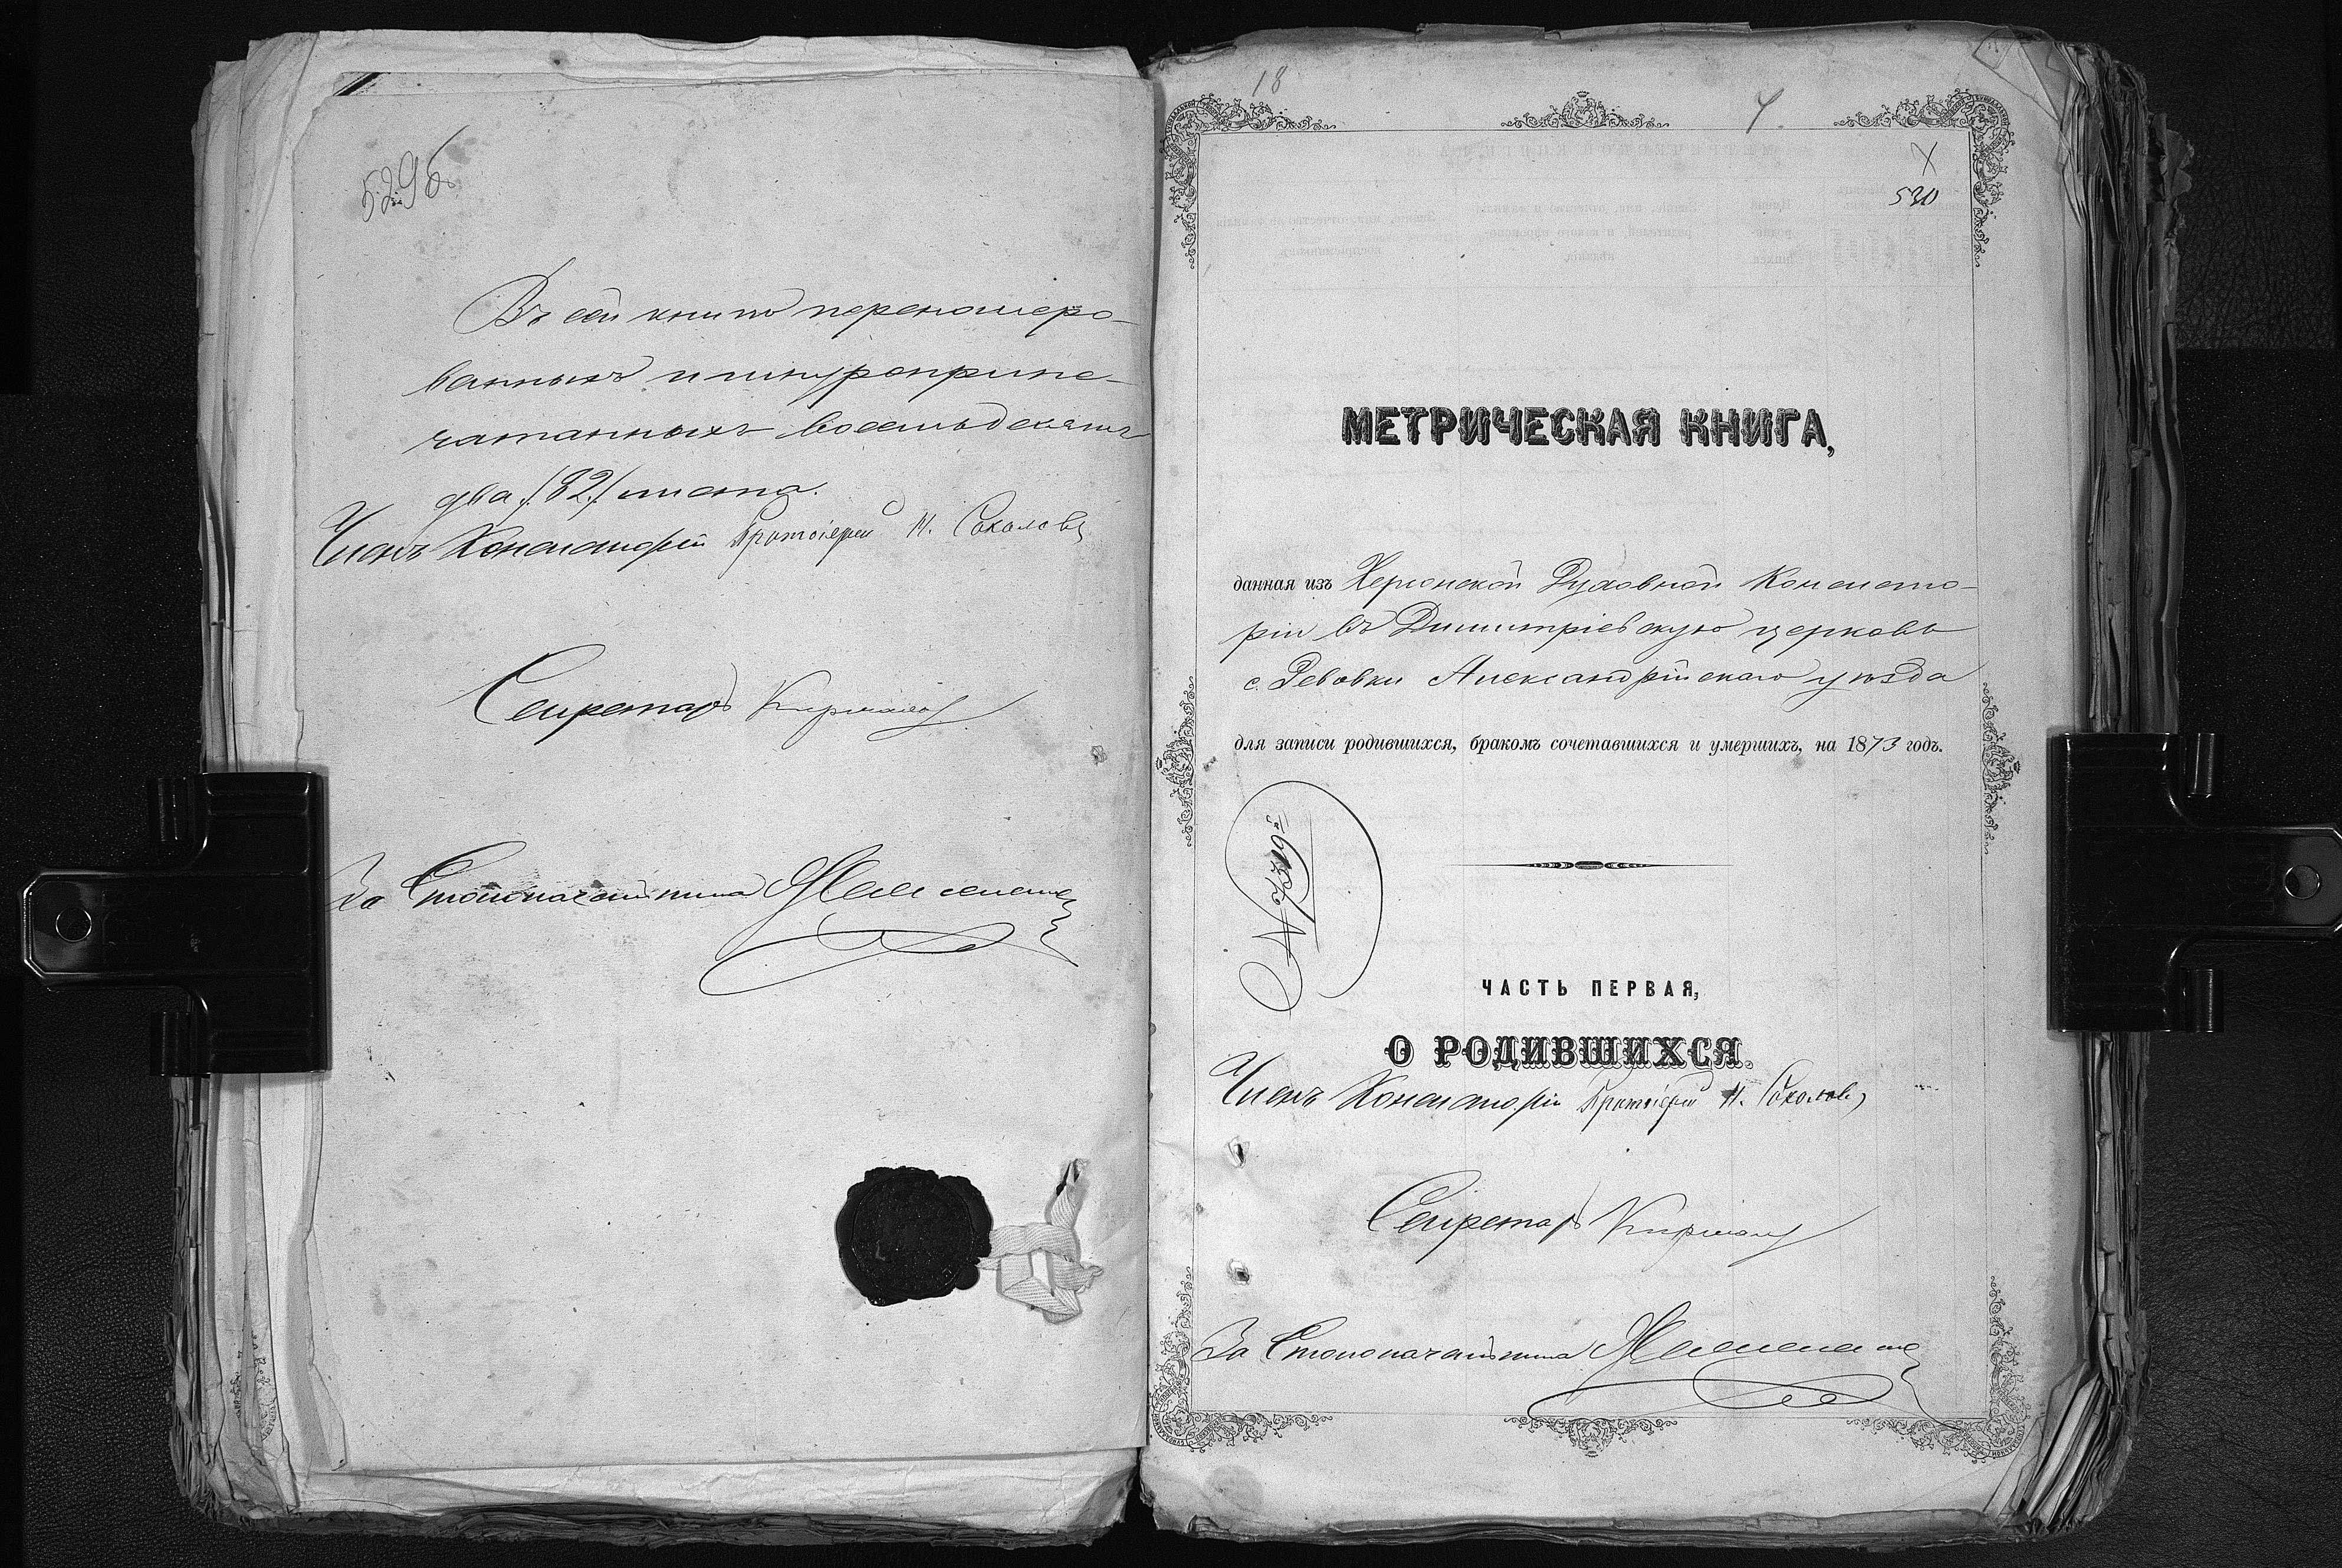 529б
Въ сей книгѣ перенумеро-
ванныхъ и шнуроприпе-
чатанныхъ восемьдесятъ
два /82/ листа.
Членъ Консисторіи Протоіерей Н. Соколовъ
Секретарь
За Столоначальника
18
4.
530
МЕТРИЧЕСКАЯ КНИГА,
данная изъ Херсонской Духовной Консисто-
ріи въ Димитріевскую церковь
с. Ревовки Александрійскаго уѣзда
для записи родившихся, бракомъ сочетавшихся и умершихъ, на 1873 годъ.
№ 7319
ЧАСТЬ ПЕРВАЯ,
О РОДИВШИХСЯ.
Членъ Консисторіи Протоіерей Н. Соколовъ
Секретарь
За Столоначальника